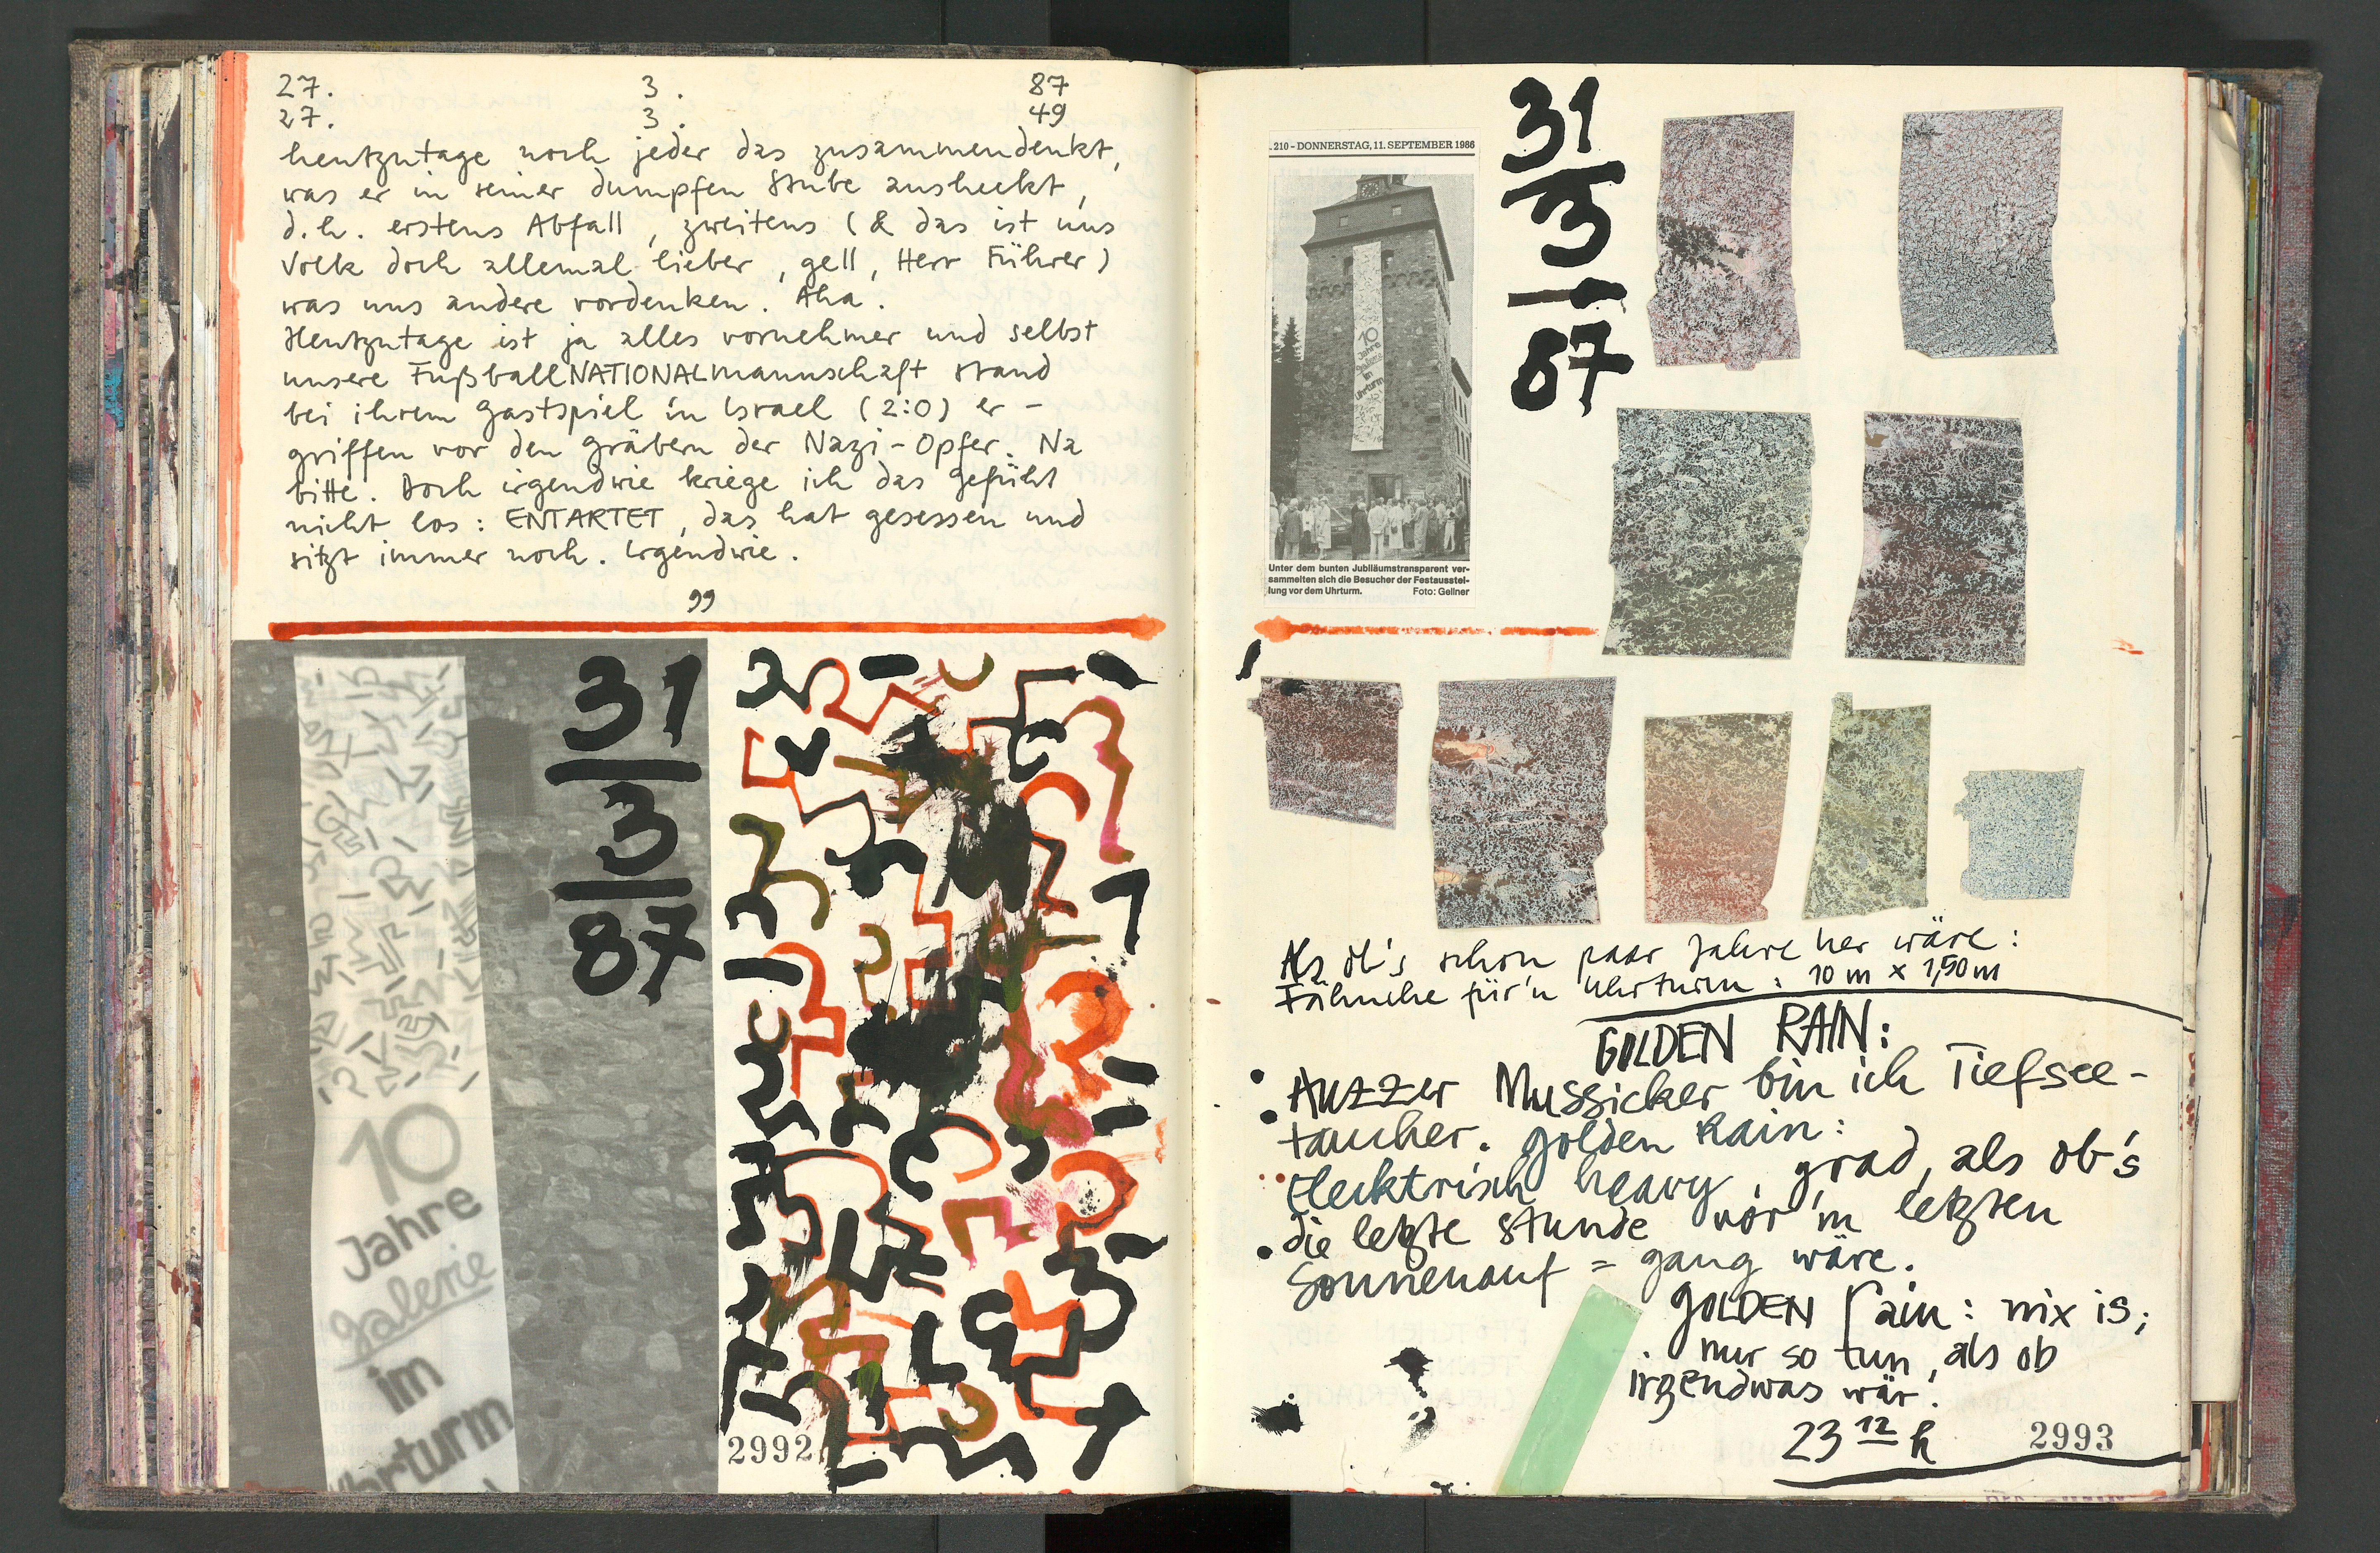 27. 3. 87
27. 3. 49
heutzutage noch jeder das zusammendenkt,
was er in seiner dumpfen Stube ausheckt,
d.h. erstens Abfall, zweitens (& das ist uns
Volk doch allemal lieber, gell, Herr Führer)
was uns andere vordenken. Aha.
Heutzutage ist ja alles vornehmer und selbst
unsere FußballNATIONALmannschaft stand
bei ihrem Gastspiel in Israel (2:0) er-
griffen vor den Gräbern der Nazi-Opfer. Na
bitte. Doch irgendwie kriege ich das Gefühl
nicht los: ENTARTET, das hat gesessen und
sitzt immer noch. Irgendwie.
99
31
3
87
10
Jahre
Galerie
im
Uhrturm
2992
. 210 – DONNERSTAG, 11. SEPTEMBER 1986
10
Jahre
Galerie
im
Uhrturm
Unter dem bunten Jubiläumstransparent ver-
sammelten sich die Besucher der Festausstel-
lung vor dem Uhrturm. Foto: Gellner
31
3
87
Als ob's schon paar Jahre her wäre:
Fähnche für'n Uhrturm: 10 m x 1,50 m
GOLDEN RAIN:
Auzzer Mussicker bin ich Tiefsee-
taucher. Golden Rain:
Elecktrisch heavy, grad, als ob's
die letzte Stunde vor'm letzten
Sonnenauf = gang wäre.
GOLDEN rain: nix is;
nur so tun, als ob
irgendwas wär.
23 12 h
2993